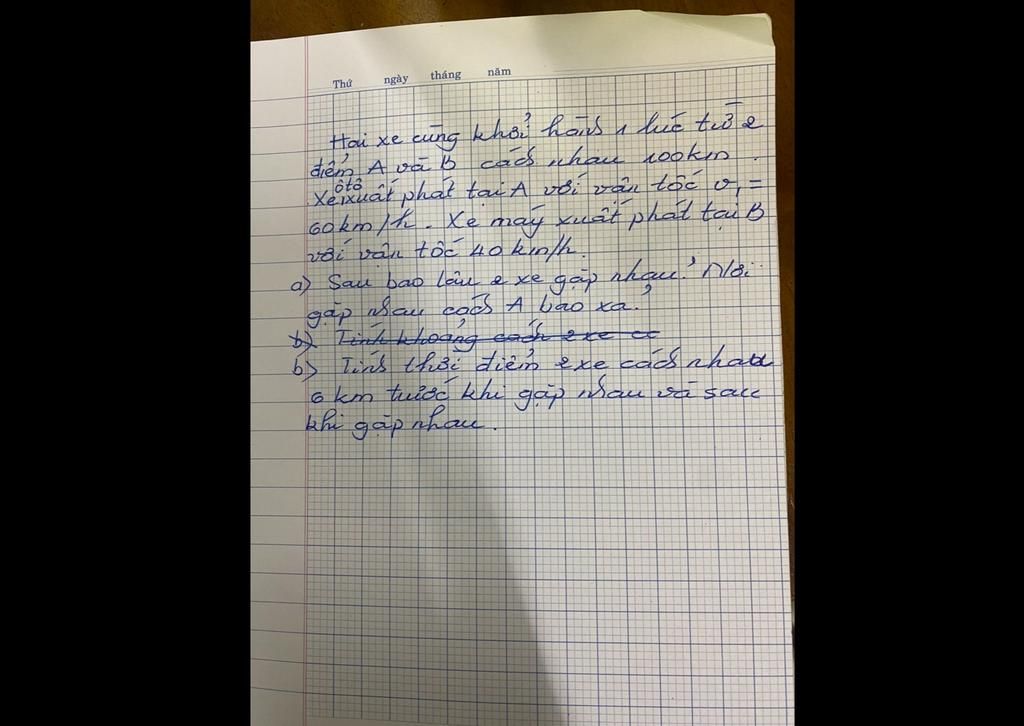 Thứ ngày tháng năm
Hai xe cùng khởi hành 1 lúc từ 2
điểm A và B cách nhau 100km.
Xe ôtô xuất phát tại A với vận tốc v₁ =
60km/h. Xe máy xuất phát tại B
với vận tốc 40 km/h.
a) Sau bao lâu 2 xe gặp nhau? Nơi
gặp nhau cách A bao xa?
b) Tính khoảng cách 2 xe cc
b) Tính thời điểm 2 xe cách nhau
6 km trước khi gặp nhau và sau
khi gặp nhau.